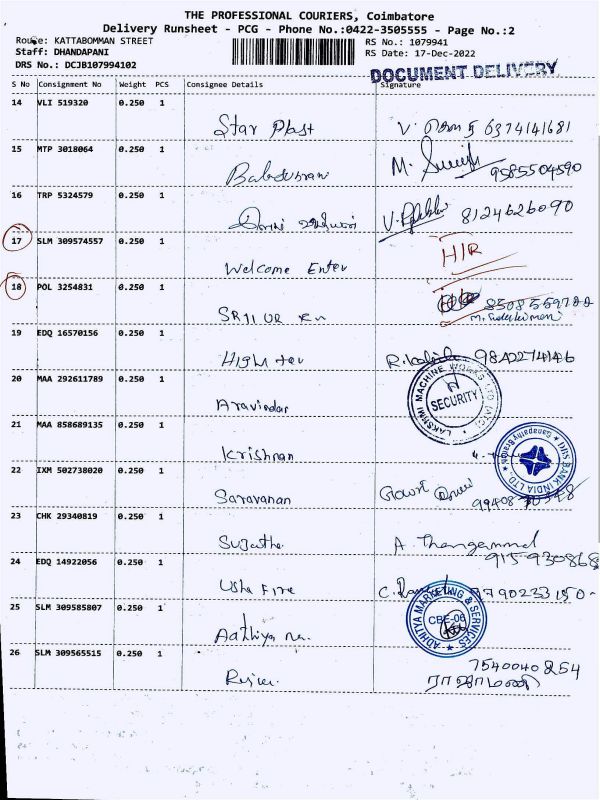 THE PROFESSIONAL COURIERS, Coimbatore
Delivery Runsheet - PCG - Phone No.:0422-3505555 - Page No.:2
Route: KATTABOMMAN STREET
RS No.: 1079941
Staff: DHANDAPANI
RS Date: 17-Dec-2022
DRS No.: DCJB107994102
DOCUMENT DELIVERY
S No Consignment No Weight PCS Consignee Details Signature
14 VLI 519320 0.250 1
Star Plast V. 6374141681
15 MTP 3018064 0.250 1
M. Suresh 9585504590
16 TRP 5324579 0.250 1
8124626090
17 SLM 309574557 0.250 1
Welcome Enter
18 POL 3254831 0.250 1
19 EDQ 16570156 0.250 1
9842274146
20 MAA 292611789 0.250 1
Aravindar
LAKSHMI MACHINE WORKS LTD
SECURITY
21 MAA 858689135 0.250 1
Krishnan
DBS BANK INDIA LTD.
Ganapathy Branch
22 IXM 502738020 0.250 1
Saravanan
23 CHK 29340819 0.250 1
Sujatha A. Thangammal
915930868
24 EDQ 14922056 0.250 1
Usha Fire 7790233150-
25 SLM 309585807 0.250 1
Aathiya
ADHITYA MARKETING & SERVICES
CBE-06
26 SLM 309565515 0.250 1
7540040254
ராஜாமணி